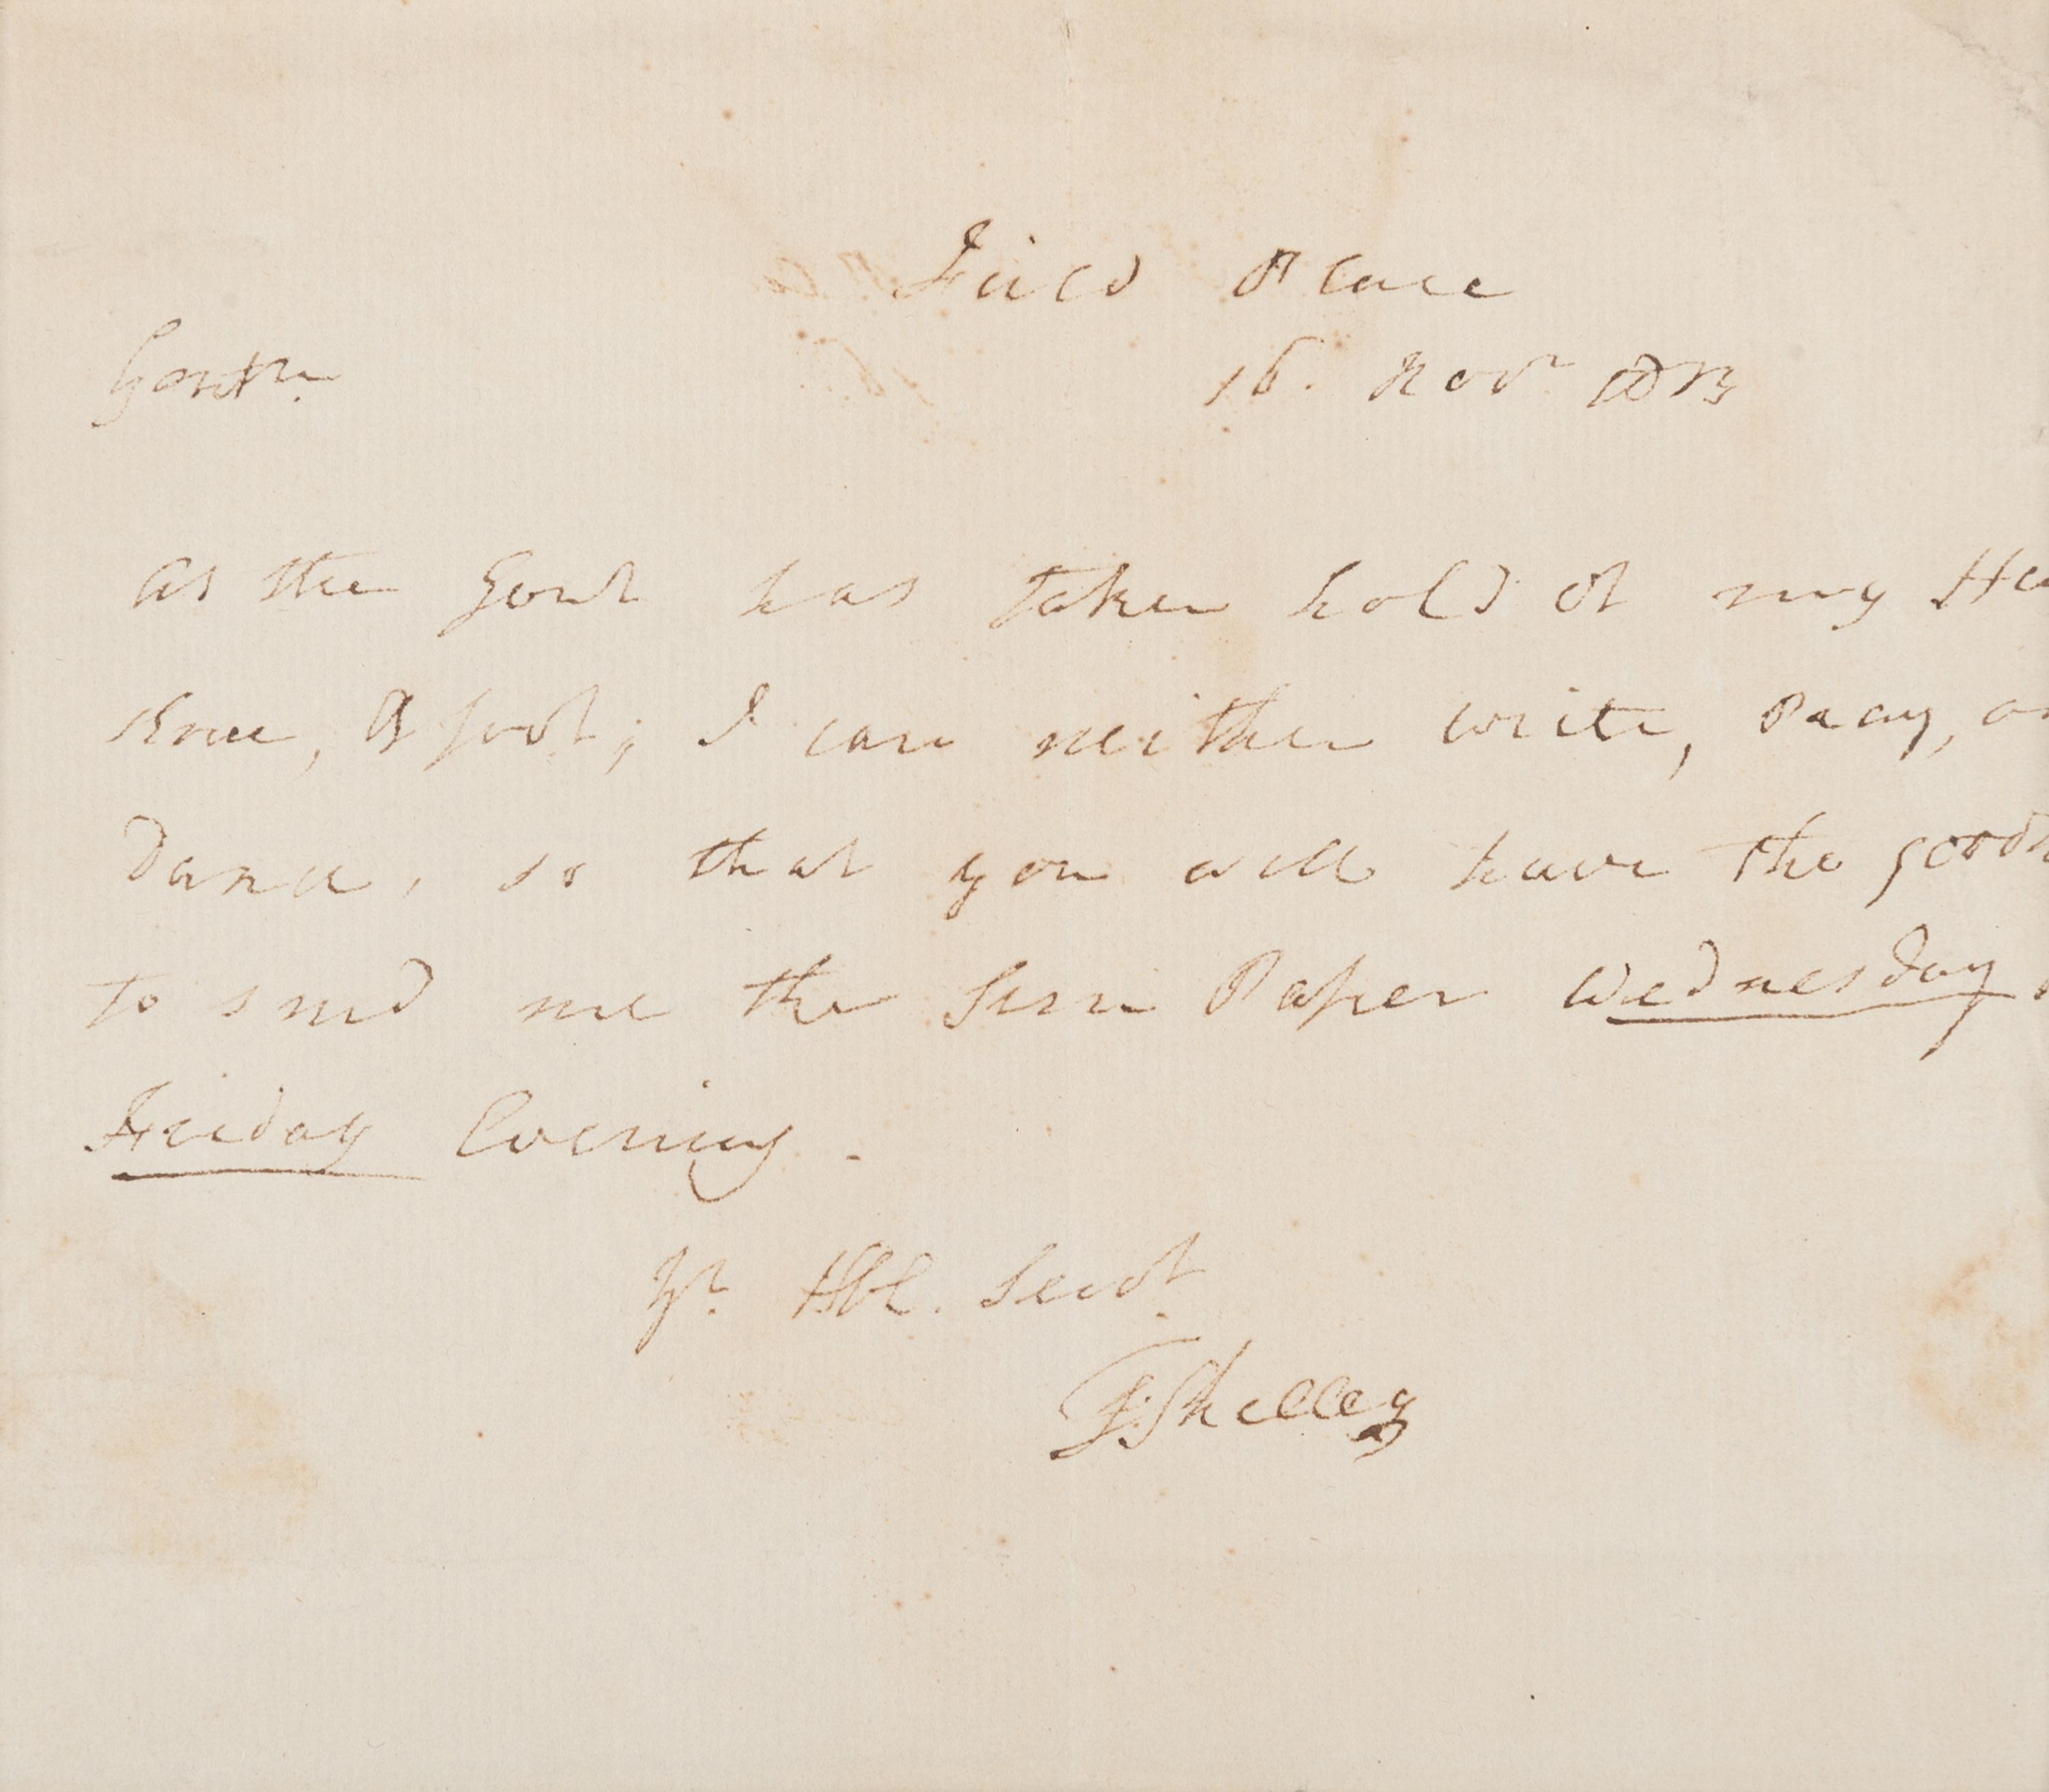 Field Place
Gentn.
16. Novr 1813
as the Gout has taken hold of my
Knee, & foot; I can neither write, Pray, or
Dance, so that you will have the
to send me the Sun Paper Wednesday
Friday Evening.
Yr. Hble. Servt.
T: Shelley